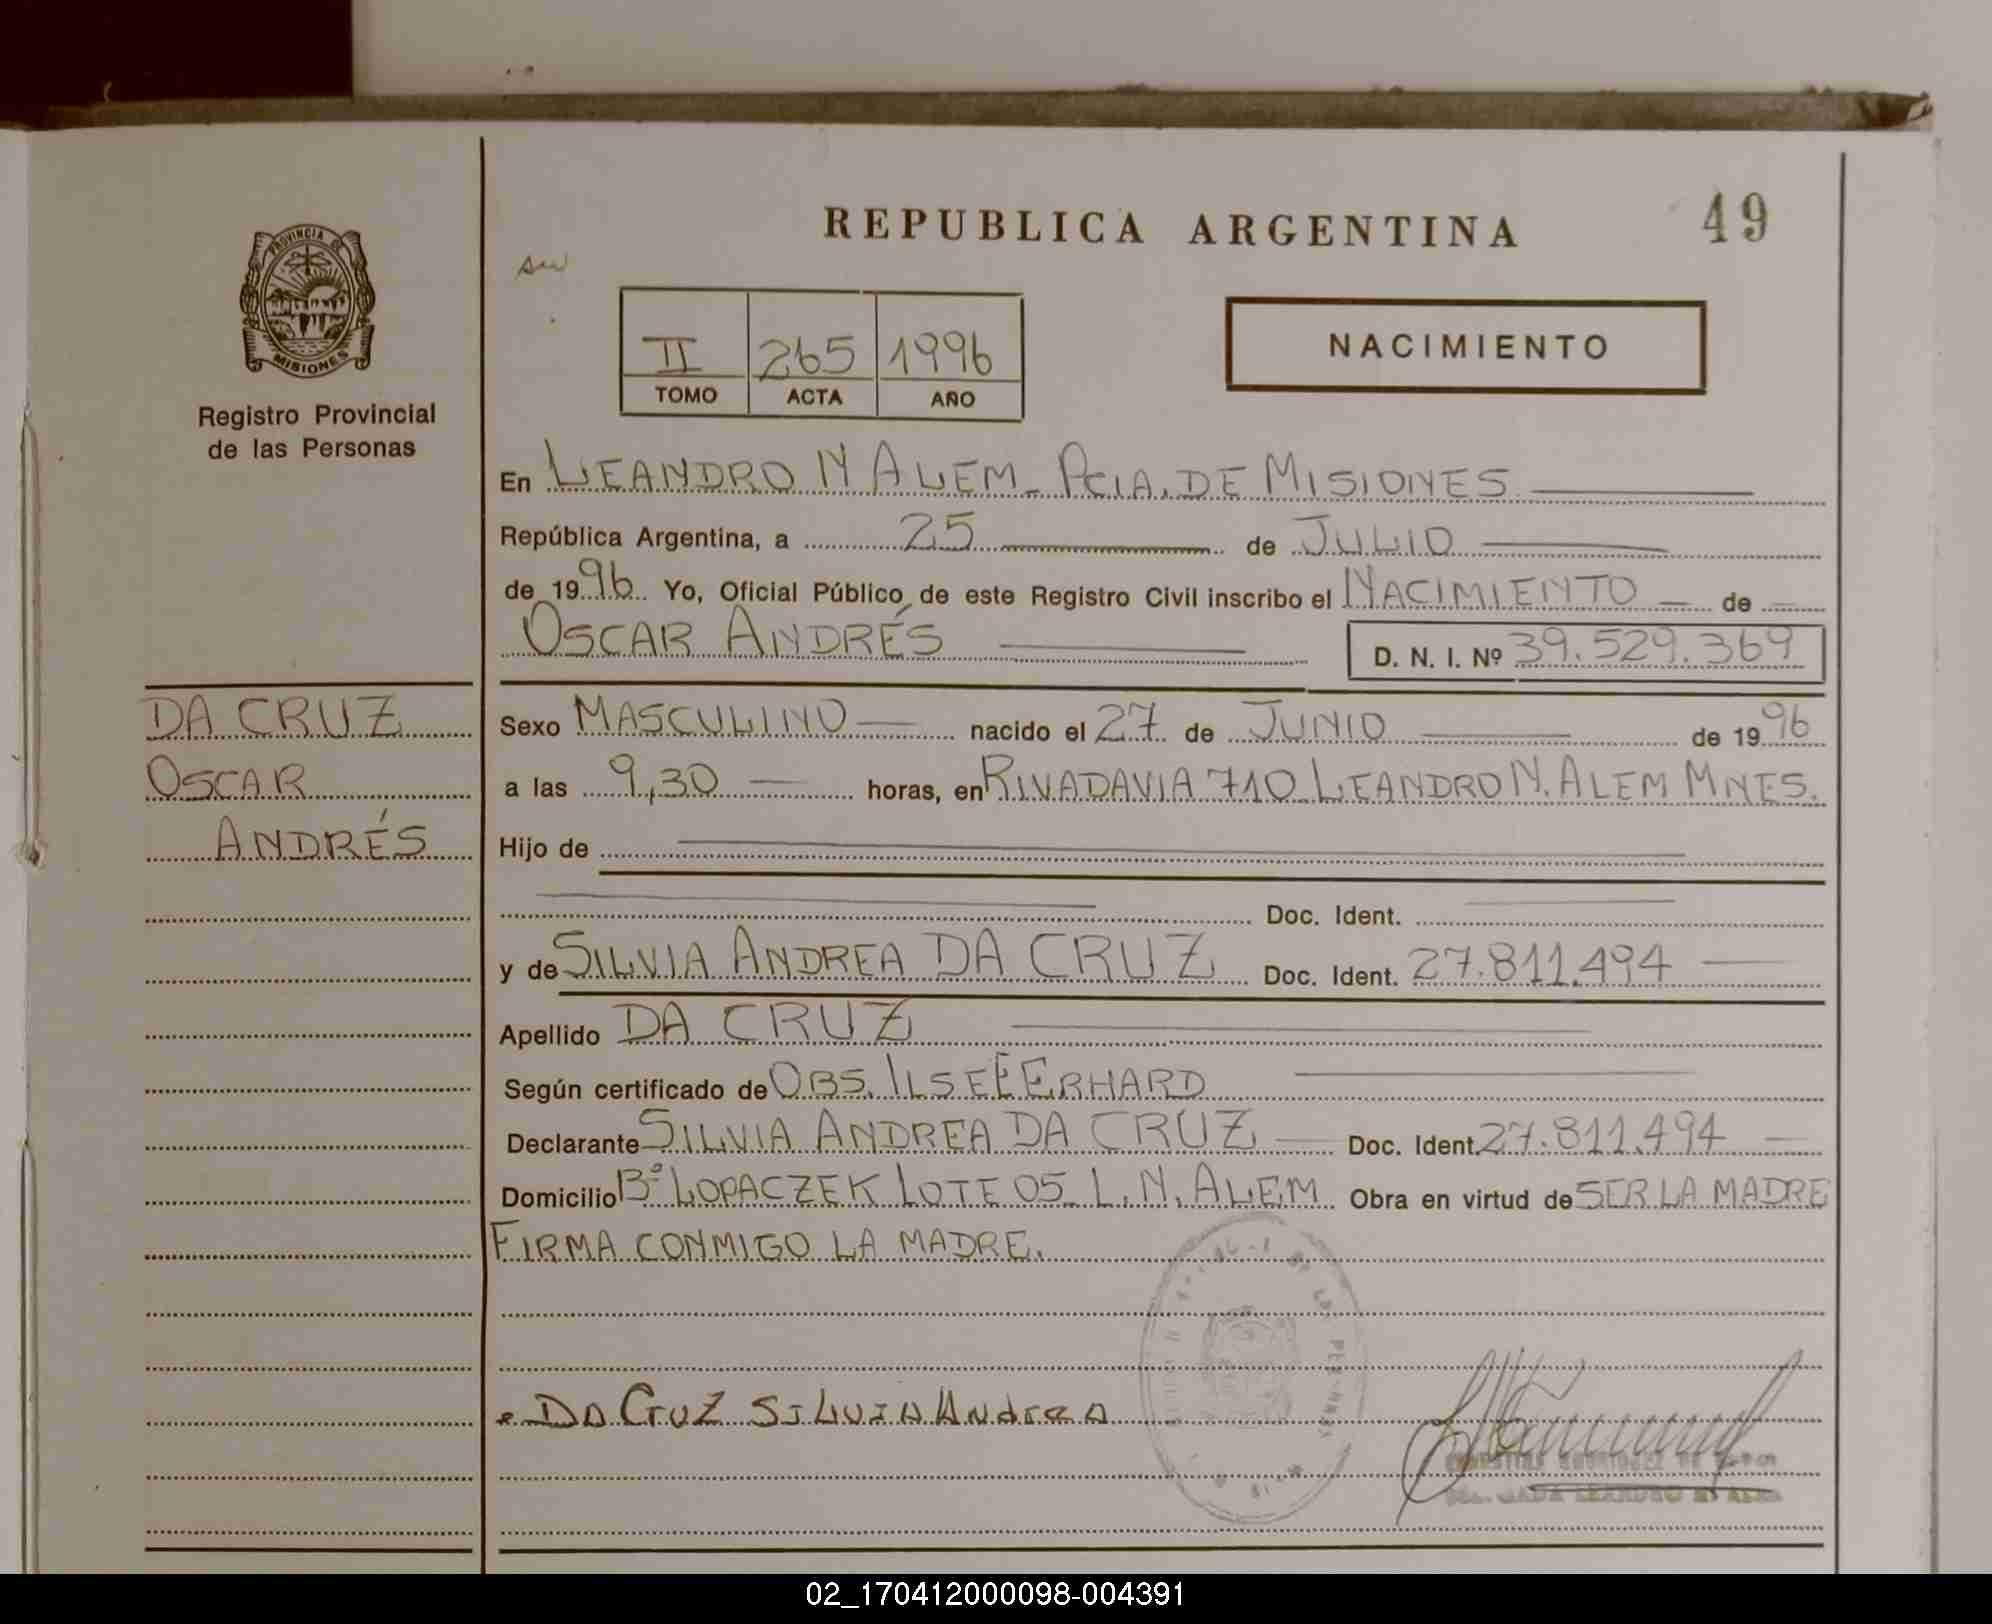 REPUBLICA ARGENTINA
49
PROVINCIA DE
MISIONES
Registro Provincial
de las Personas
II 265 1996
TOMO ACTA AÑO
NACIMIENTO
En LEANDRO N ALEM - PCIA. DE MISIONES
República Argentina, a 25 de JULIO
de 1996 Yo, Oficial Público de este Registro Civil inscribo el NACIMIENTO de
OSCAR ANDRÉS D. N. I. Nº 39.529.369
DA CRUZ
OSCAR
ANDRÉS
Sexo MASCULINO nacido el 27 de JUNIO de 1996
a las 9,30 horas, en RIVADAVIA 710 LEANDRO N. ALEM MNES.
Hijo de
Doc. Ident.
y de SILVIA ANDREA DA CRUZ Doc. Ident. 27.811.494
Apellido DA CRUZ
Según certificado de OBS. ILSE E ERHARD
Declarante SILVIA ANDREA DA CRUZ Doc. Ident. 27.811.494
Domicilio Bº LOPACZEK LOTE 05 L.N. ALEM Obra en virtud de SER LA MADRE
FIRMA CONMIGO LA MADRE.
DA CruZ SILVIA Andrea
02_170412000098-004391